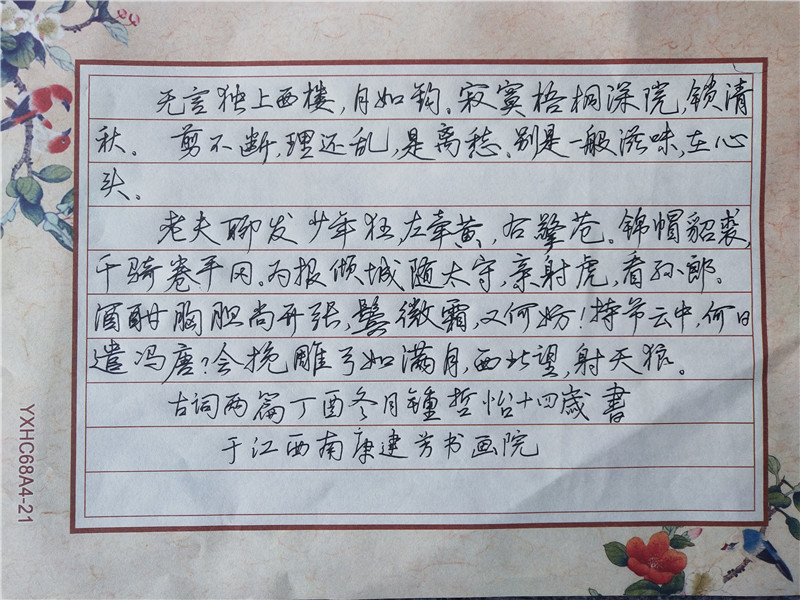 无言独上西楼，月如钩。寂寞梧桐深院，锁清
秋。剪不断，理还乱，是离愁。别是一般滋味，在心
头。
老夫聊发少年狂，左牵黄，右擎苍。锦帽貂裘，
千骑卷平冈。为报倾城随太守，亲射虎，看孙郎。
酒酣胸胆尚开张，鬓微霜，又何妨！持节云中，何日
遣冯唐？会挽雕弓如满月，西北望，射天狼。
古词两篇丁酉冬月锺哲怡十四歳書
于江西南康建芳书画院
YXHC68A4-21